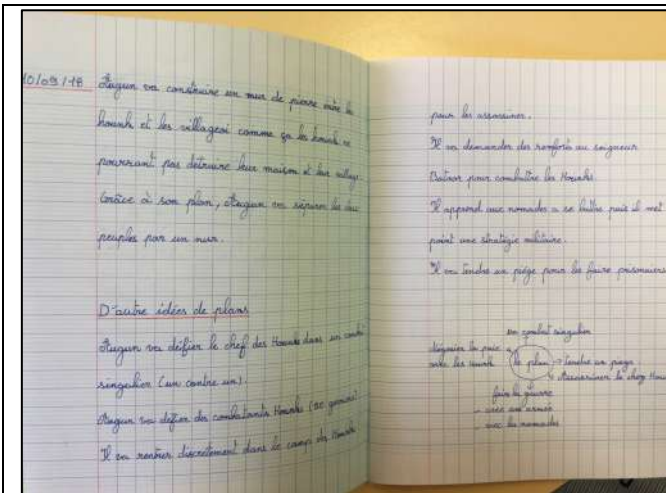 10/09/18 Augun va construire un mur de pierre entre les
hounk et les villageoi comme ça les hounk ne
pourrant pas detruire leur maison et leur village.
Grâce à son plan, Augun va séparer les deux
peuples par un mur.
D'autre idées de plans
Augun va défier le chef des Hounks dans un comba
singulier (un contre un).
Augun va défier des combatants Hounks
Il va rentrer discretement dans le camp des Hounks
pour les assassiner.
Il va demander des renforts au seigneur
pour combattre les Hounks
Il apprend aux nomades a se battre puis il met
point une stratégie militaire.
Il va tendre un piège pour les faire prisonniers
un combat singulier
négocier la paix
avec les Hounk
le plan
tendre un piège
Assassiner le chez Hou
faire la guerre
- avec une armée
- avec les nomades